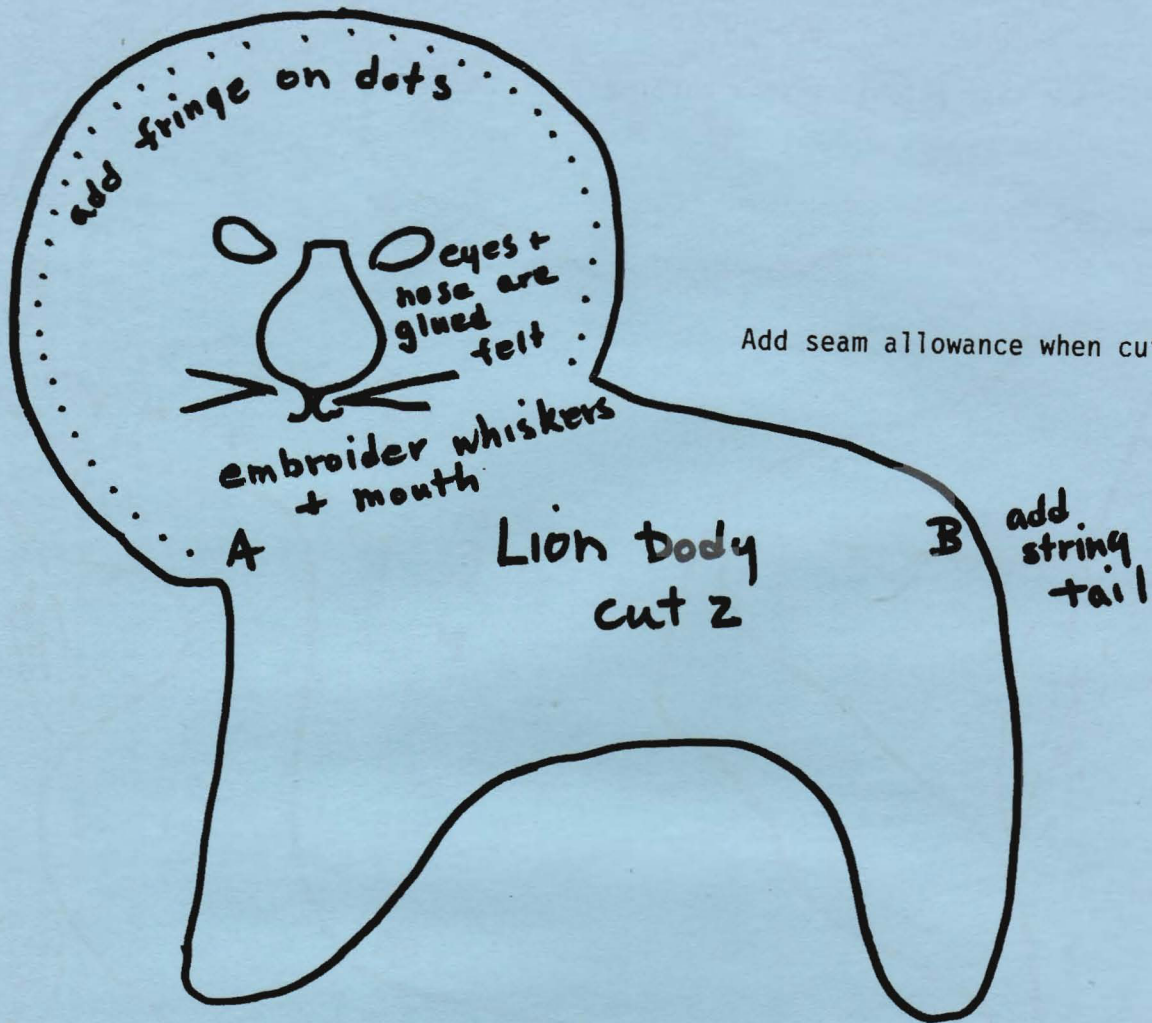 add fringe on dots
eyes +
nose are
glued
felt
Add seam allowance when
embroider whiskers
+ mouth
A
Lion body
cut 2
B
add
string
tail